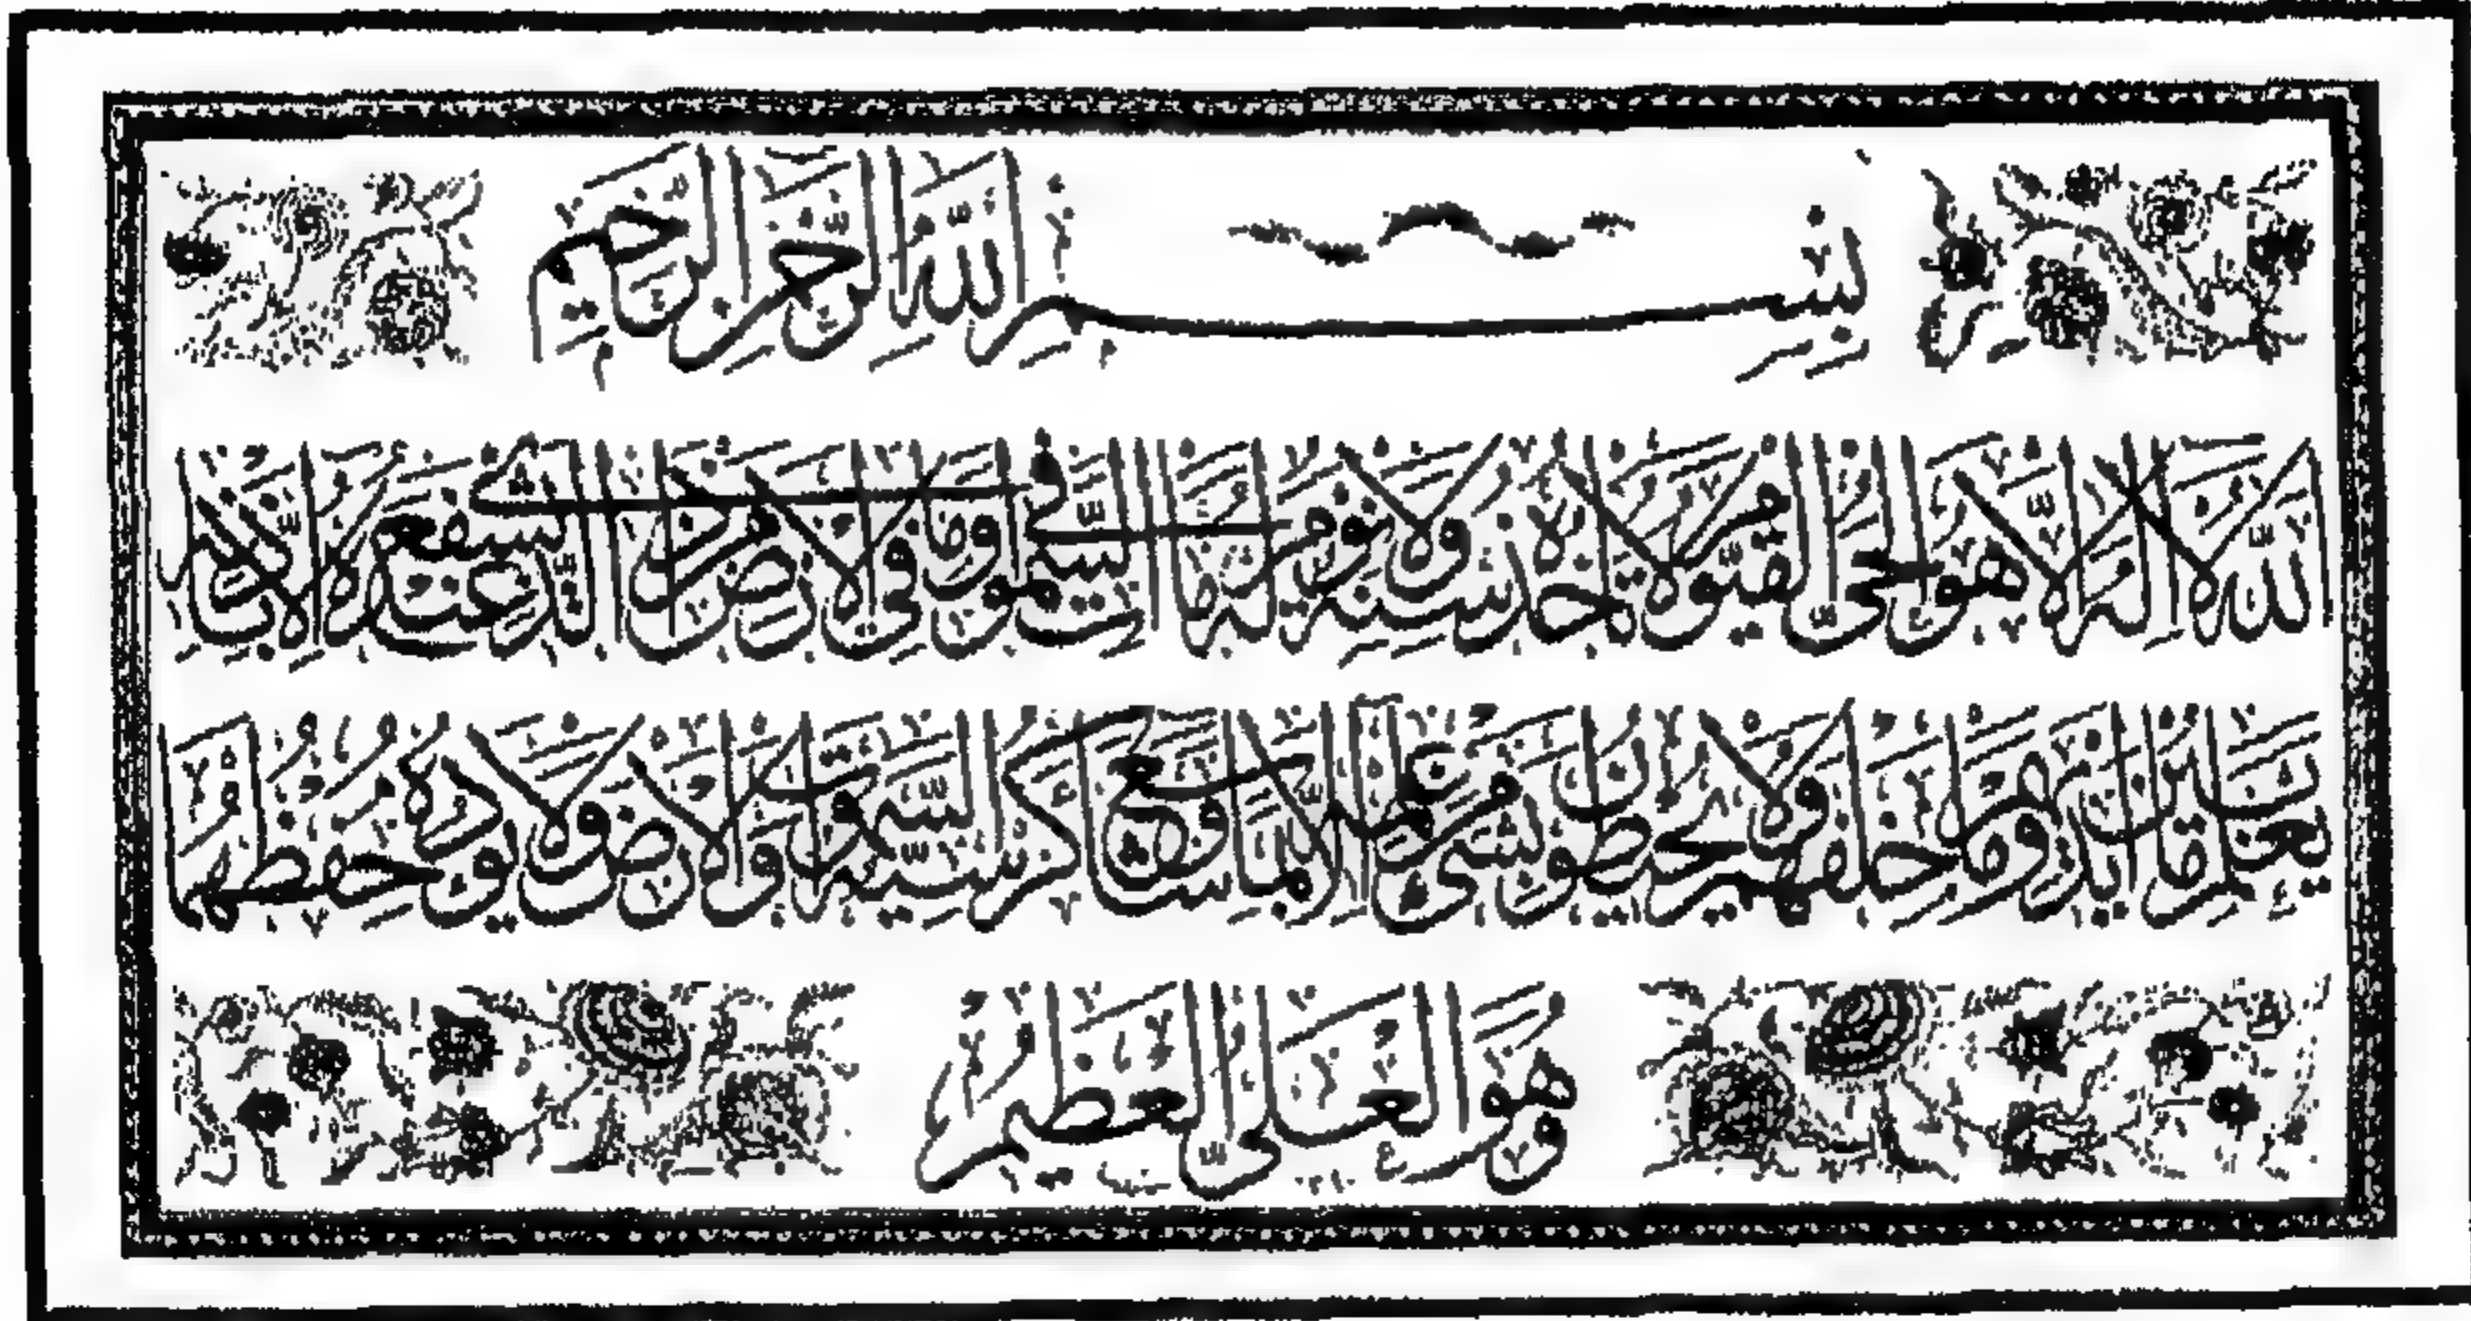 بِسْمِ اللَّهِ الرَّحْمَنِ الرَّحِيمِ
اللَّهُ لَا إِلَهَ إِلَّا هُوَ الْحَيُّ الْقَيُّومُ لَا تَأْخُذُهُ سِنَةٌ وَلَا نَوْمٌ لَهُ مَا فِي السَّمَوَاتِ وَمَا فِي الْأَرْضِ مَنْ ذَا الَّذِي يَشْفَعُ عِنْدَهُ إِلَّا بِإِذْنِهِ
يَعْلَمُ مَا بَيْنَ أَيْدِيهِمْ وَمَا خَلْفَهُمْ وَلَا يُحِيطُونَ بِشَيْءٍ مِنْ عِلْمِهِ إِلَّا بِمَا شَاءَ وَسِعَ كُرْسِيُّهُ السَّمَوَاتِ وَالْأَرْضَ وَلَا يَئُودُهُ حِفْظُهُمَا
وَهُوَ الْعَلِيُّ الْعَظِيمُ